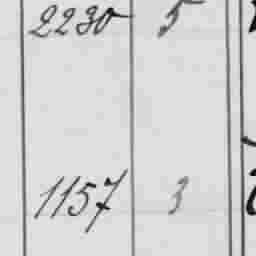 2230 5
1157 3